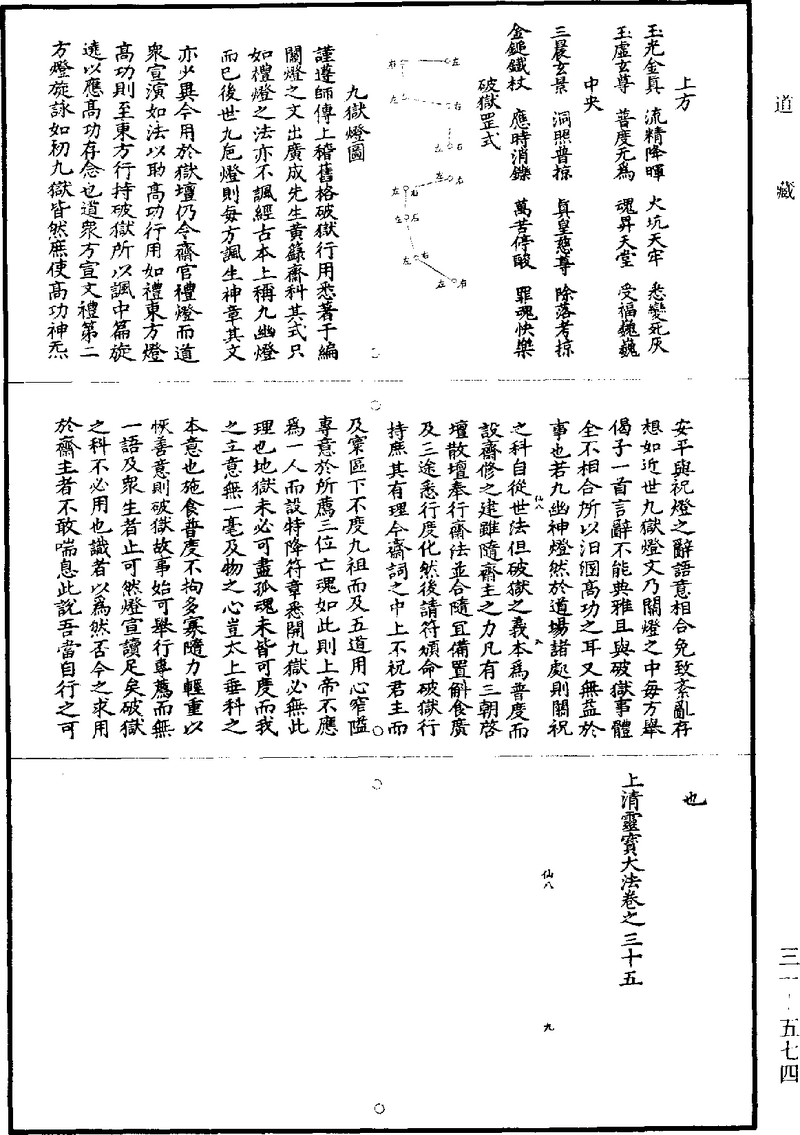 道藏
三一-五七四
上方
玉光金眞　流精降暉　火坑天牢　悉變死灰
玉虛玄尊　普度无為　魂昇天堂　受福巍巍
中央
三晨玄景　洞照普掠　眞皇慈尊　除落考掠
金鎚鐵杖　應時消鑠　萬苦停酸　罪魂快樂
破獄罡式
左
右
右
左
左
右
右
左
左
右
左
右
右
左
九獄燈圖
謹遵師傳上稽舊格破獄行用悉著于編
關燈之文出廣成先生黃籙齋科其式只
如禮燈之法亦不諷經古本上稱九幽燈
而已後世九巵燈則每方諷生神章其文
亦少異今用於獄壇仍令齋官禮燈而道
衆宣演如法以助高功行用如禮東方燈
高功則至東方行持破獄所以諷中篇旋
遶以應高功存念也道衆方宣文禮第二
方燈旋詠如初九獄皆然庶使高功神炁
安平與祝燈之辭語意相合免致紊亂存
想如近世九獄燈文乃關燈之中每方舉
偈子一首言辭不能典雅且與破獄事體
全不相合所以汩溷高功之耳又無益於
事也若九幽神燈然於道場諸處則關祝
仙八
之科自從世法但破獄之義本為普度而
設齋修之建雖隨齋主之力凡有三朝啓
壇散壇奉行齋法並合隨冝備置斛食廣
及三途悉行度化然後請符頒命破獄行
持庶其有理今齋詞之中上不祝君主而
及寰區下不度九祖而及五道用心窄隘
專意於所薦三位亡魂如此則上帝不應
為一人而設特降符章悉開九獄必無此
理也地獄未必可盡孤魂未皆可度而我
之立意無一毫及物之心豈太上垂科之
本意也施食普度不拘多寡隨力輕重以
恢善意則破獄故事始可舉行專薦而無
一語及衆生者止可然燈宣讀足矣破獄
之科不必用也識者以為然否今之求用
於齋主者不敢喘息此說吾當自行之可
也
上清靈寶大法卷之三十五
仙八
九